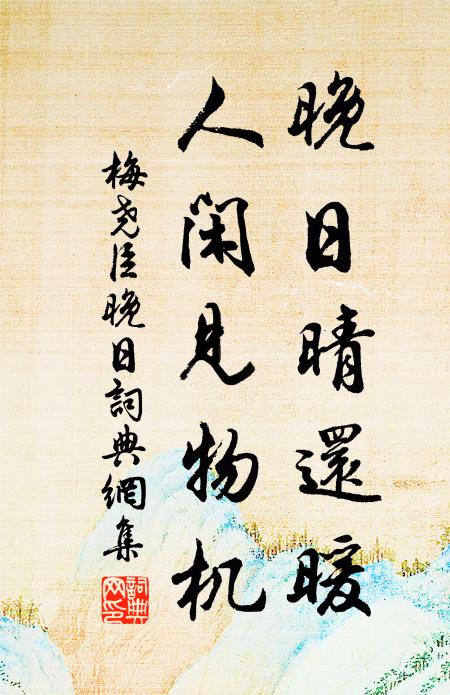 晚日晴還暖
人閑見物机
梅堯臣晚日詞典網集
詞典网印